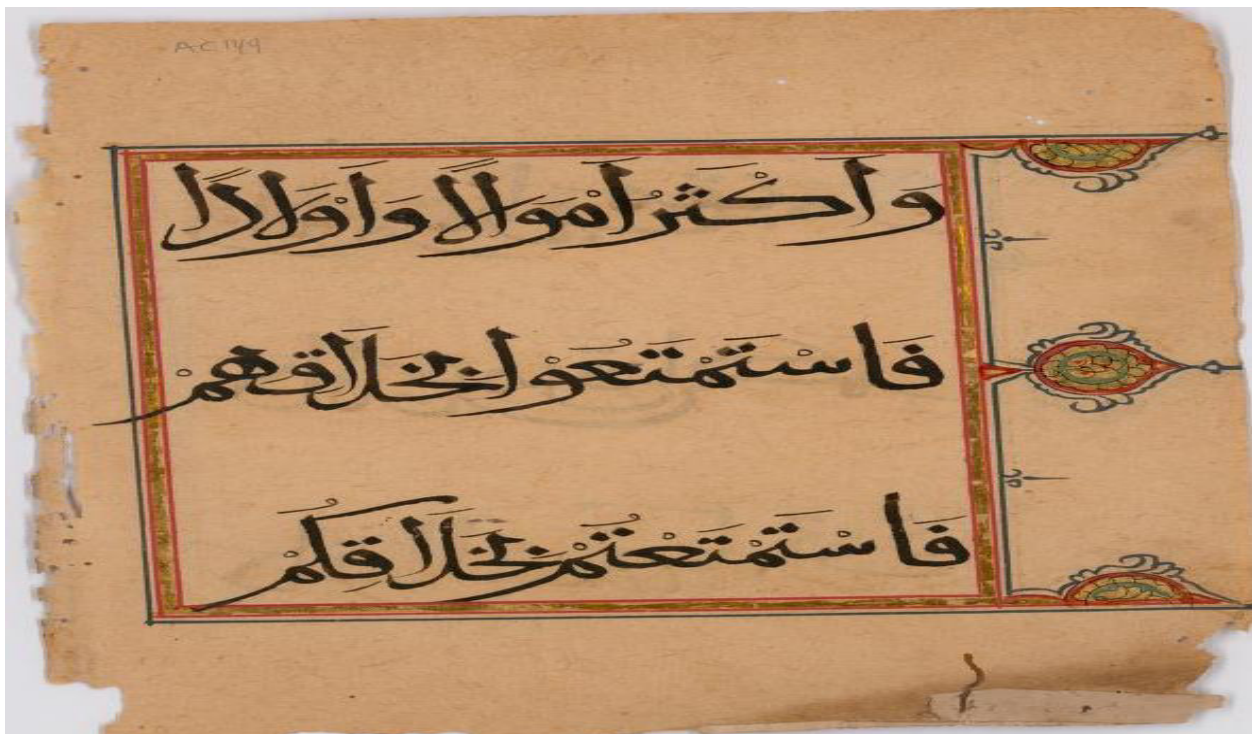 AC 1149
وَاَكْثَرُ اَمْوَالًا وَاَوْلَادًا
فَاسْتَمْتَعُوْا بِخَلَاقِهِمْ
فَاسْتَمْتَعْتُمْ بِخَلَاقِكُمْ